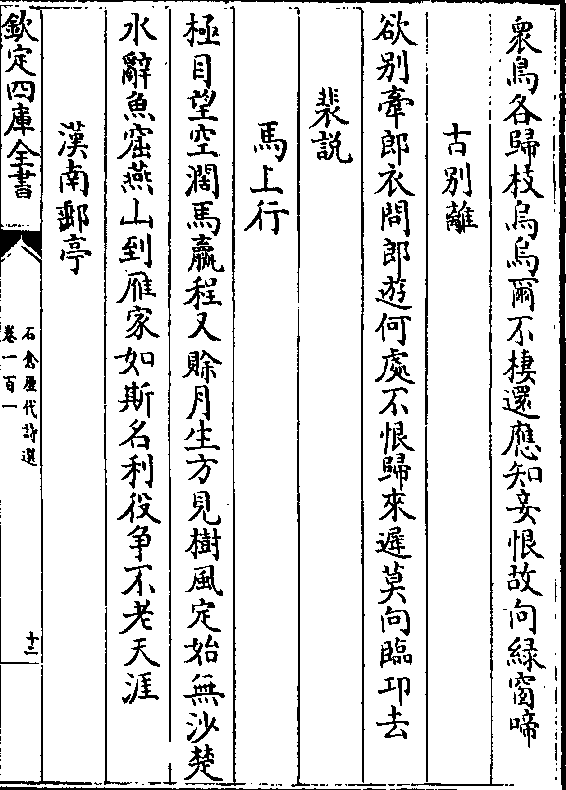 衆鳥各歸枝烏烏爾不棲還應知妾恨故向緑窗啼
古别離
欲别牽郎衣問郎遊何處不恨歸來遲莫向臨邛去
裴説
馬上行
極目望空闊馬羸程又賒月生方見樹風定始無沙楚
水辭魚窟燕山到雁家如斯名利役争不老天涯
漢南郵亭
欽定四庫全書
石倉歷代詩選
卷一百一
十二